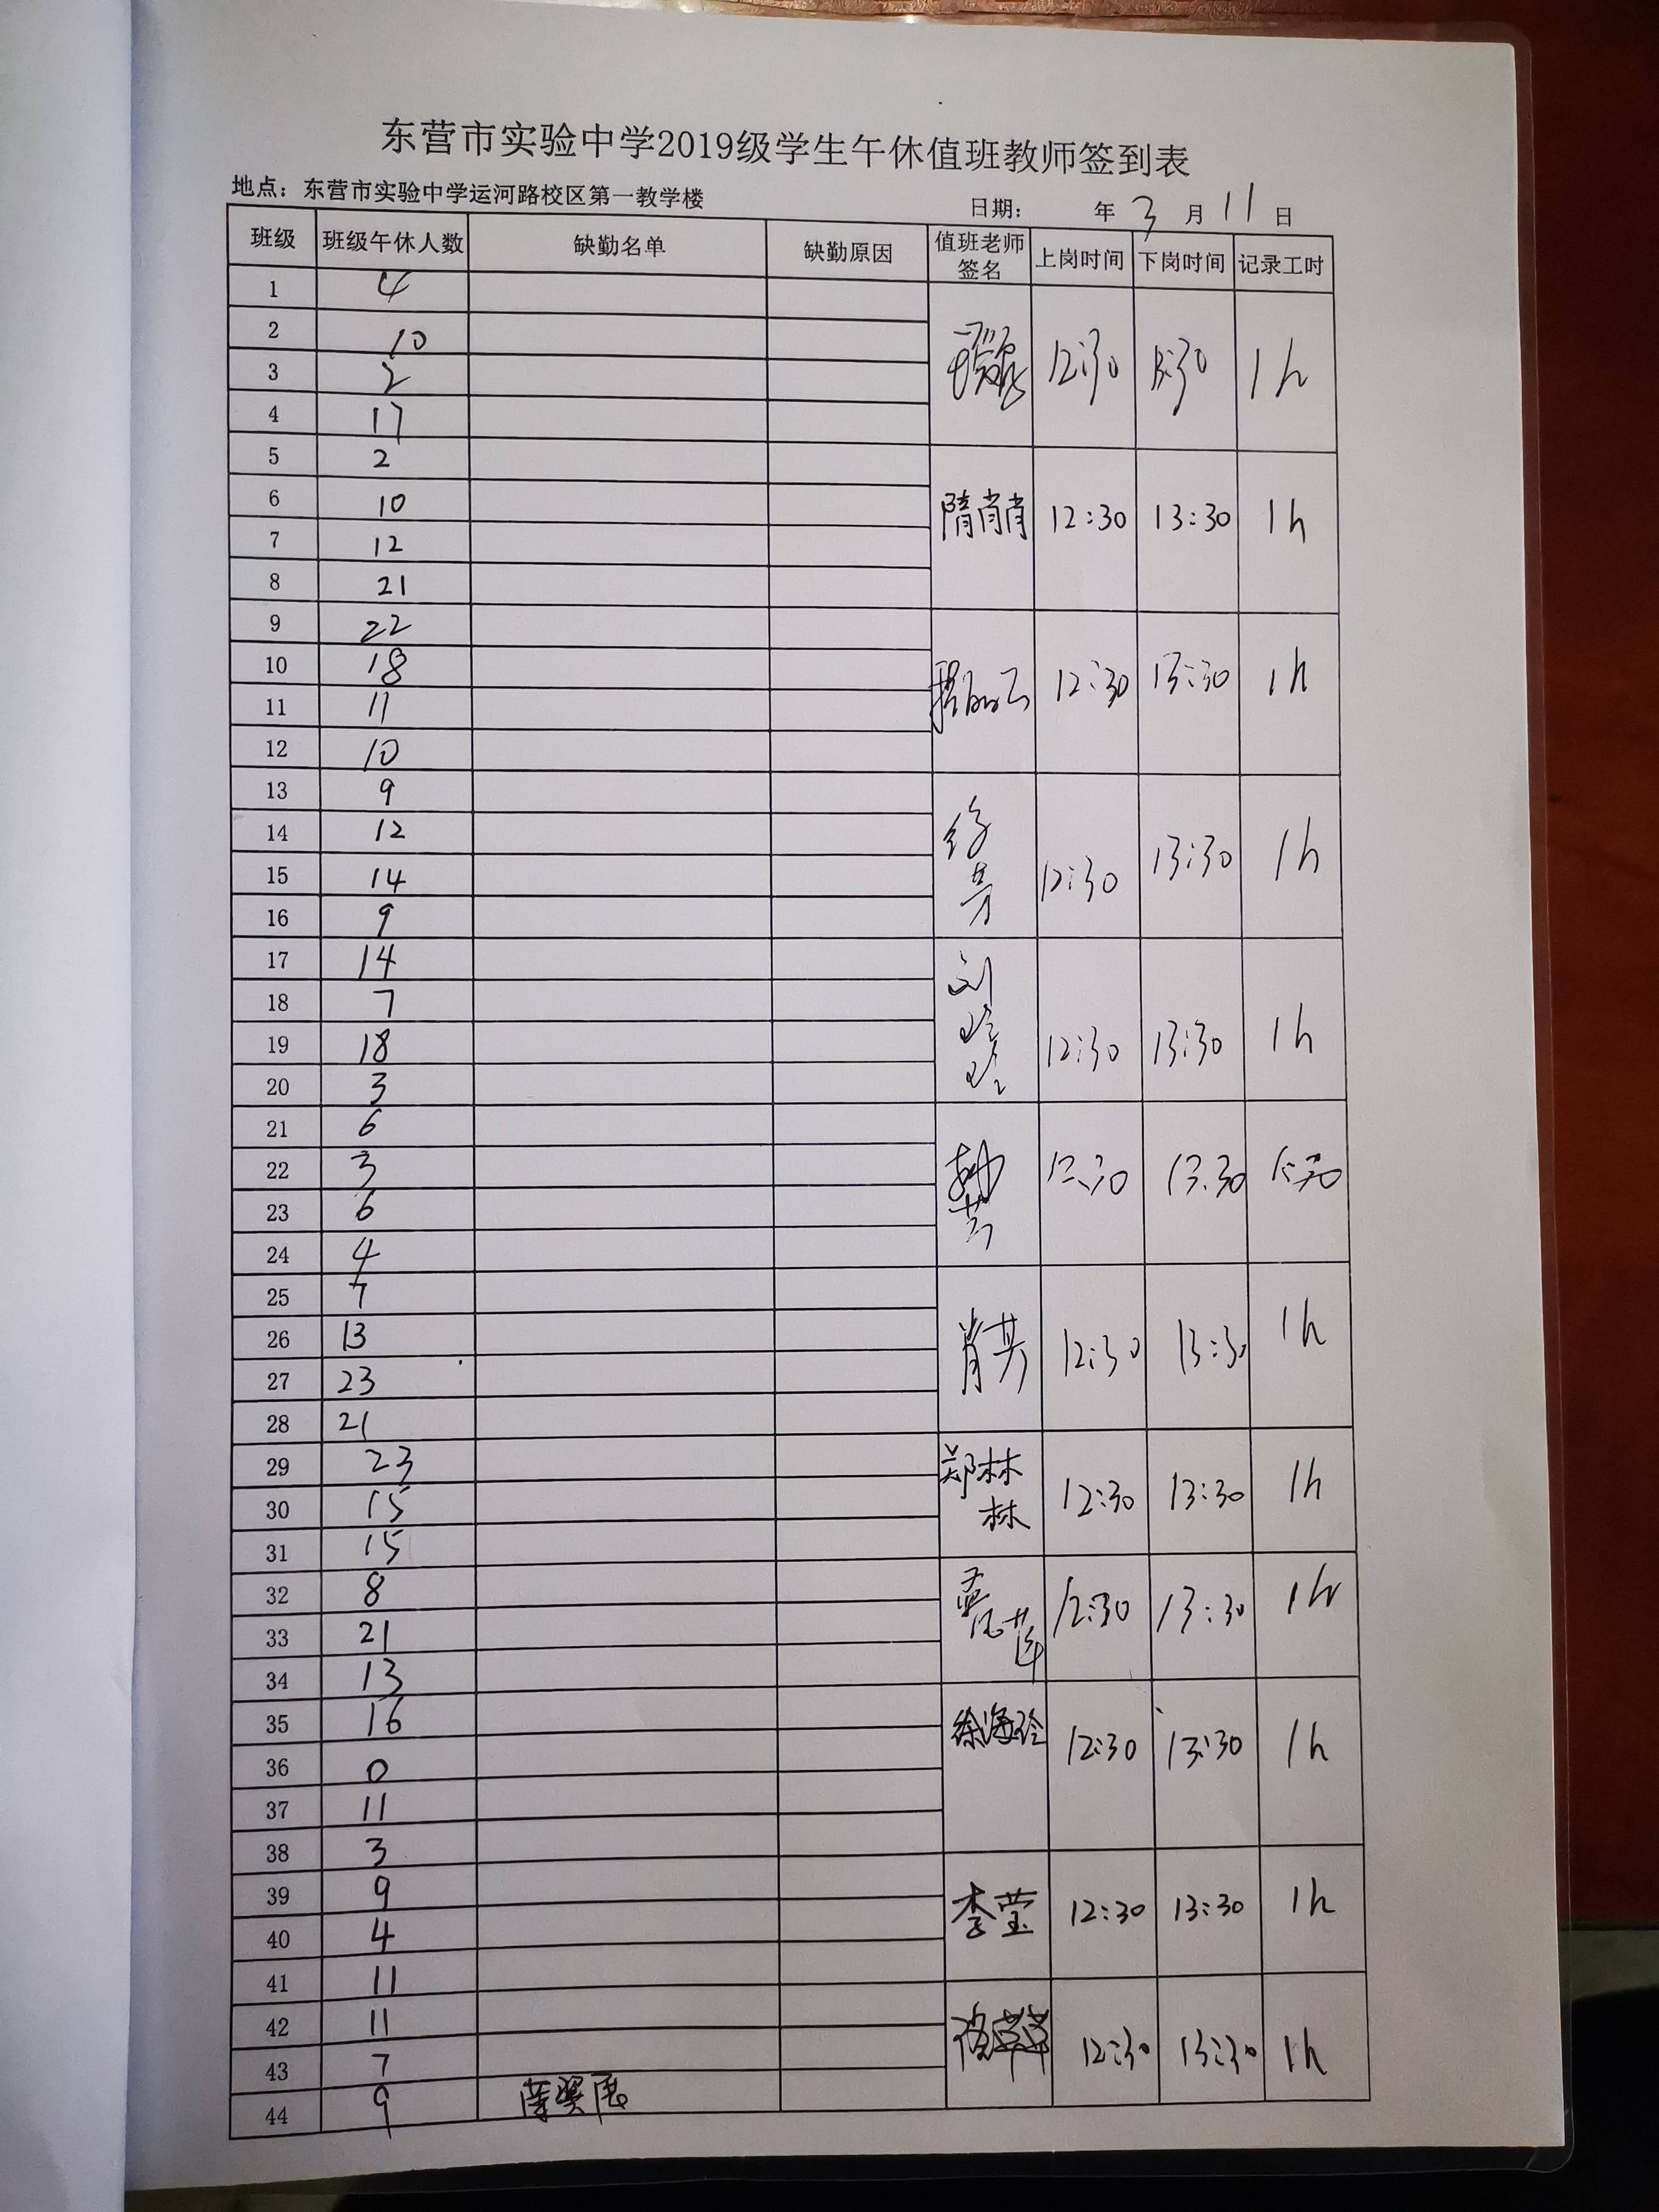 东营市实验中学2019级学生午休值班教师签到表
地点：东营市实验中学运河路校区第一教学楼 日期： 年 3 月 11 日
班级 班级午休人数 缺勤名单 缺勤原因 值班老师签名 上岗时间 下岗时间 记录工时
1 4
2 10
3 2 12:30 13:30 1h
4 17
5 2
6 10 隋肖肖 12:30 13:30 1h
7 12
8 21
9 22
10 18 12:30 13:30 1h
11 11
12 10
13 9
14 12 13:30 1h
15 14 12:30
16 9
17 14 刘
18 7
19 18 12:30 13:30 1h
20 3
21 6
22 3 12:30 13:30
23 6
24 4
25 7
26 13 肖芳 12:30 13:30 1h
27 23
28 21
29 23 郑林林
30 15 12:30 13:30 1h
31 15
32 8 12:30 13:30 1h
33 21
34 13
35 16 徐海玲 12:30 13:30 1h
36 0
37 11
38 3
39 9 李莹 12:30 13:30 1h
40 4
41 11
42 11 12:30 13:30 1h
43 7
44 9